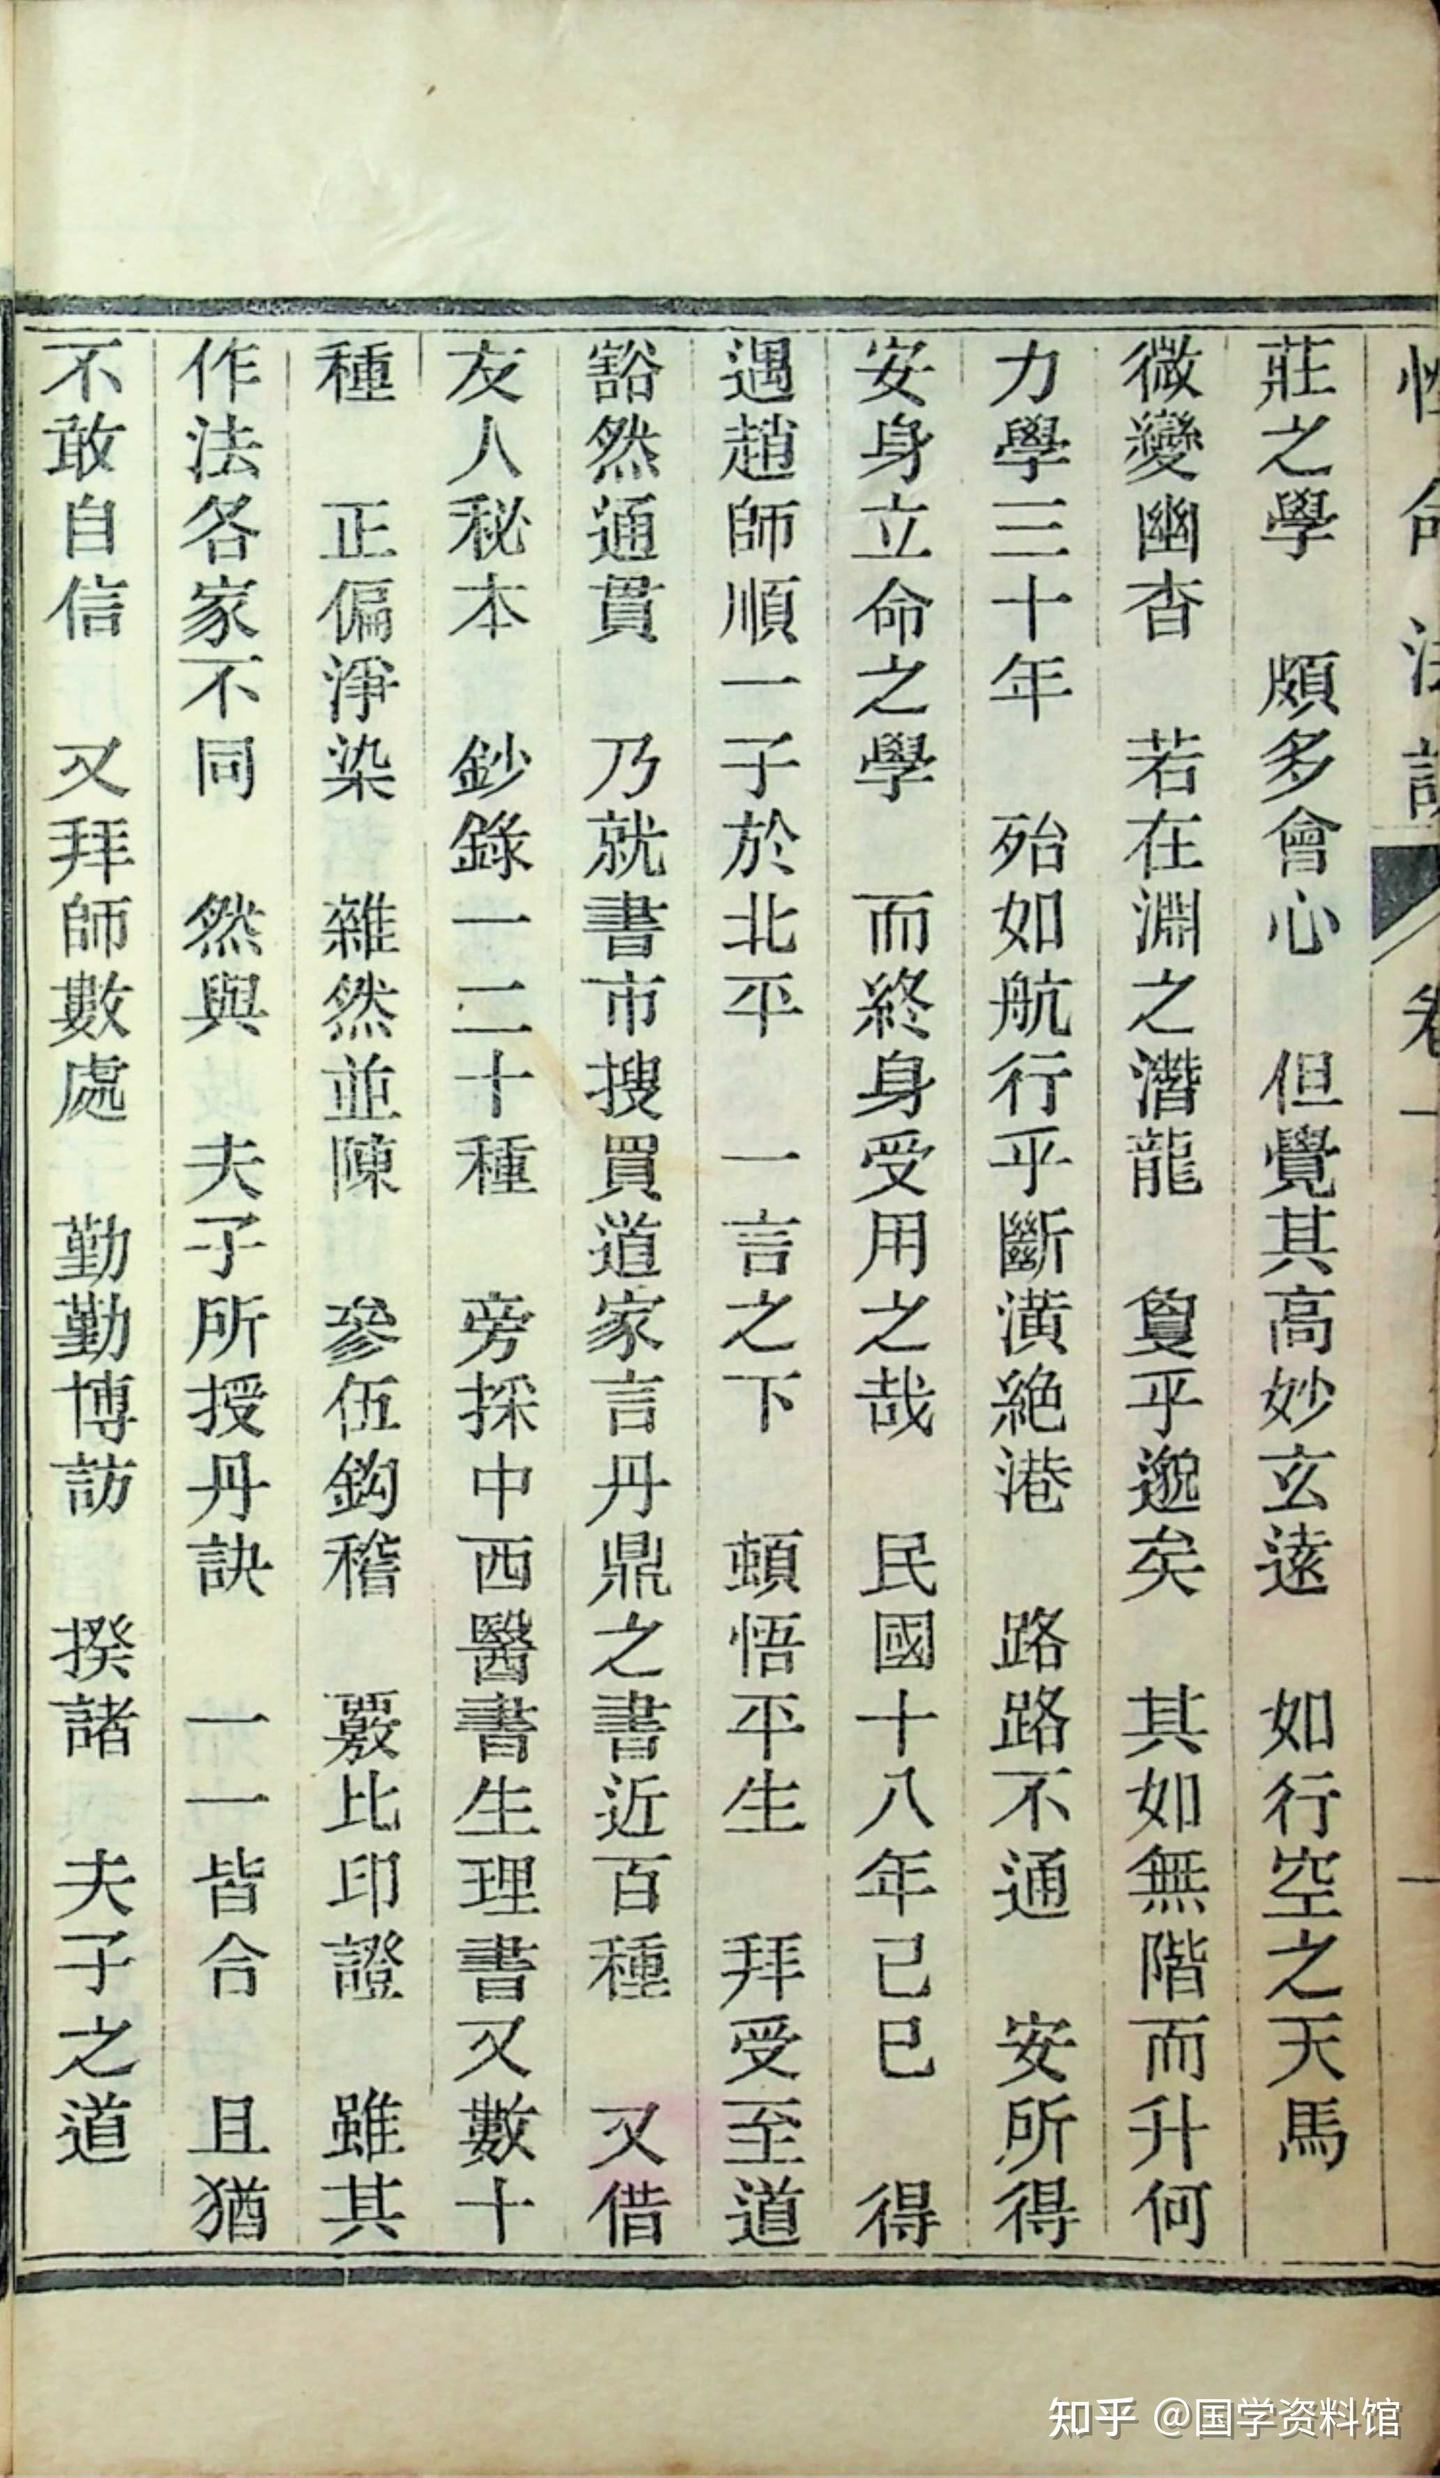 性命法訣 卷一 一
莊之學　頗多會心　但覺其高妙玄遠　如行空之天馬
微變幽杳　若在淵之潛龍　敻乎邈矣　其如無階而升何
力學三十年　殆如航行乎斷潢絕港　路路不通　安所得
安身立命之學　而終身受用之哉　民國十八年己巳　得
遇趙師順一子於北平　一言之下　頓悟平生　拜受至道
豁然通貫　乃就書市搜買道家言丹鼎之書近百種　又借
友人秘本　鈔錄一二十種　旁採中西醫書生理書又數十
種　正偏淨染　雜然並陳　參伍鈎稽　覈比印證　雖其
作法各家不同　然與　夫子所授丹訣　一一皆合　且猶
不敢自信　又拜師數處　勤勤博訪　揆諸　夫子之道
知乎 @国学资料馆